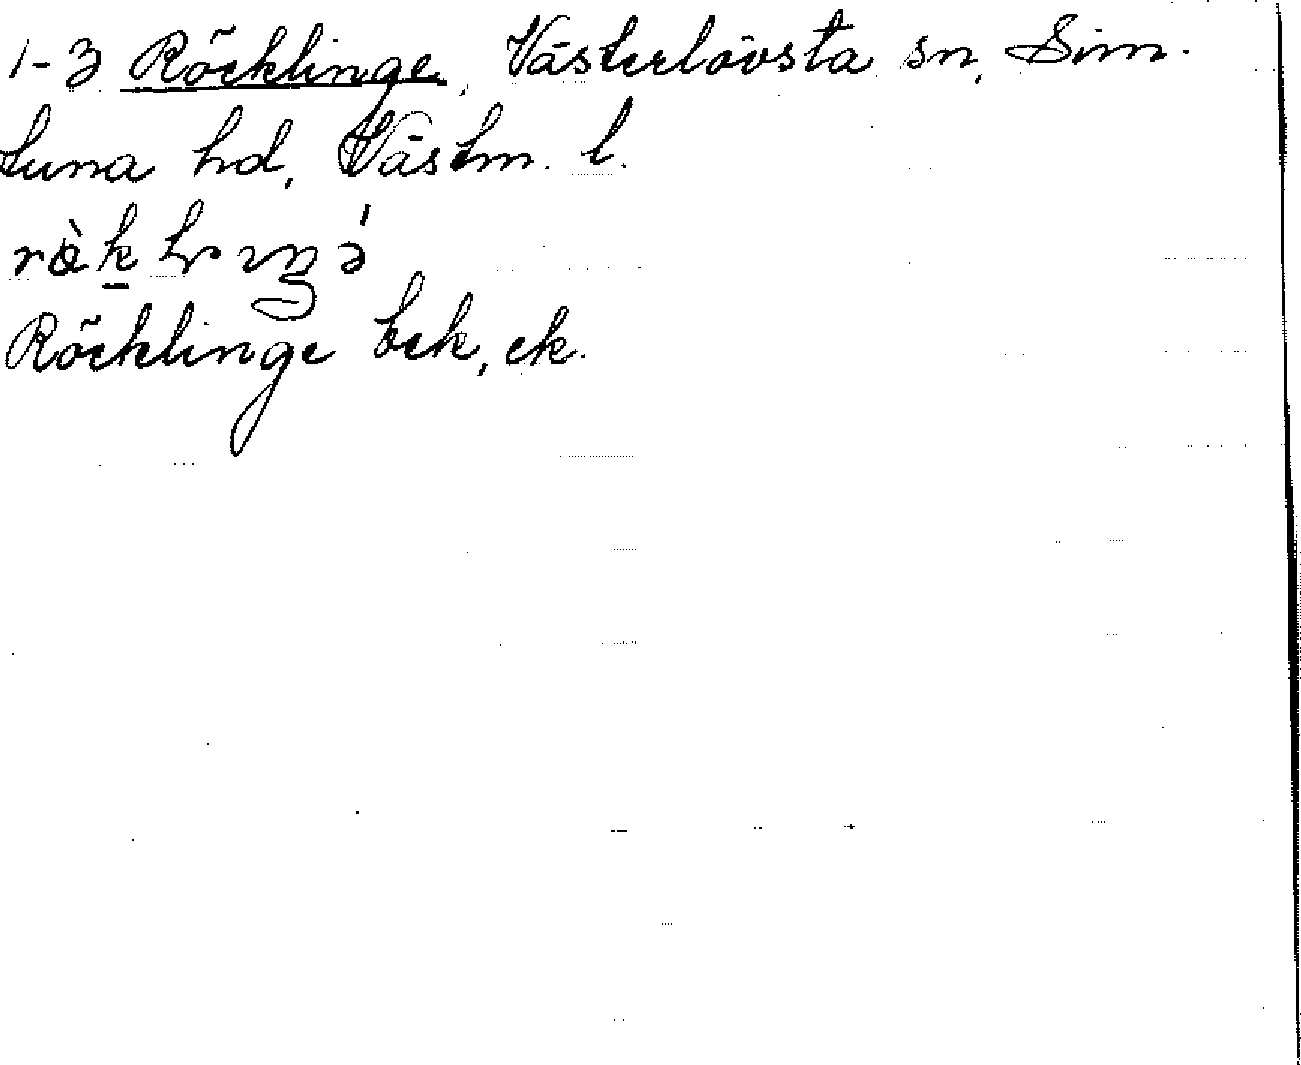 1-3 Röcklinge, Västerlövsta sn, Sim-
tuna hd, Västm. l.
Röcklinge Eek, ek.